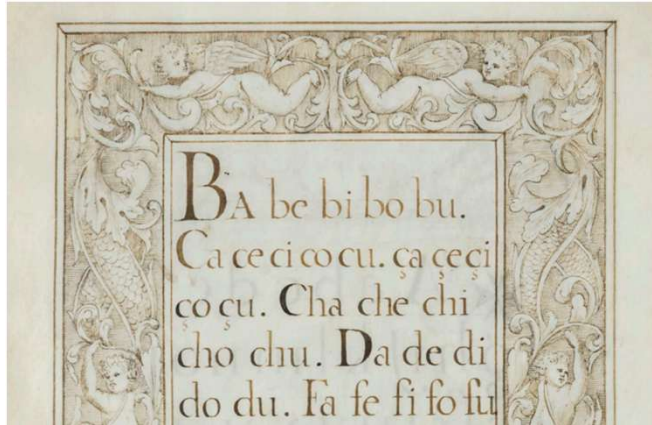 BA be bi bo bu.
Ca ce ci co cu. ça çe çi
ço çu. Cha che chi
cho chu. Da de di
do du. Fa fe fi fo fu